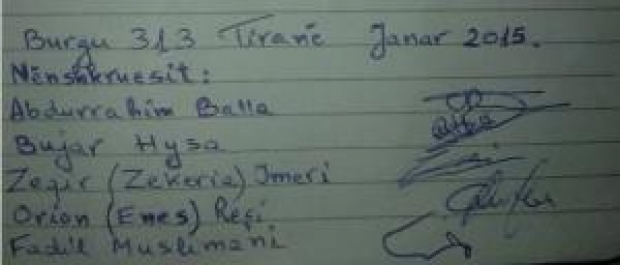 Burgu 313 Tiranë Janar 2015.
Nënshkruesit:
Abdurrahim Balla
Bujar Hysa
Zeqir (Zekeria) Imeri
Orion (Enes) Reçi
Fadil Muslimani